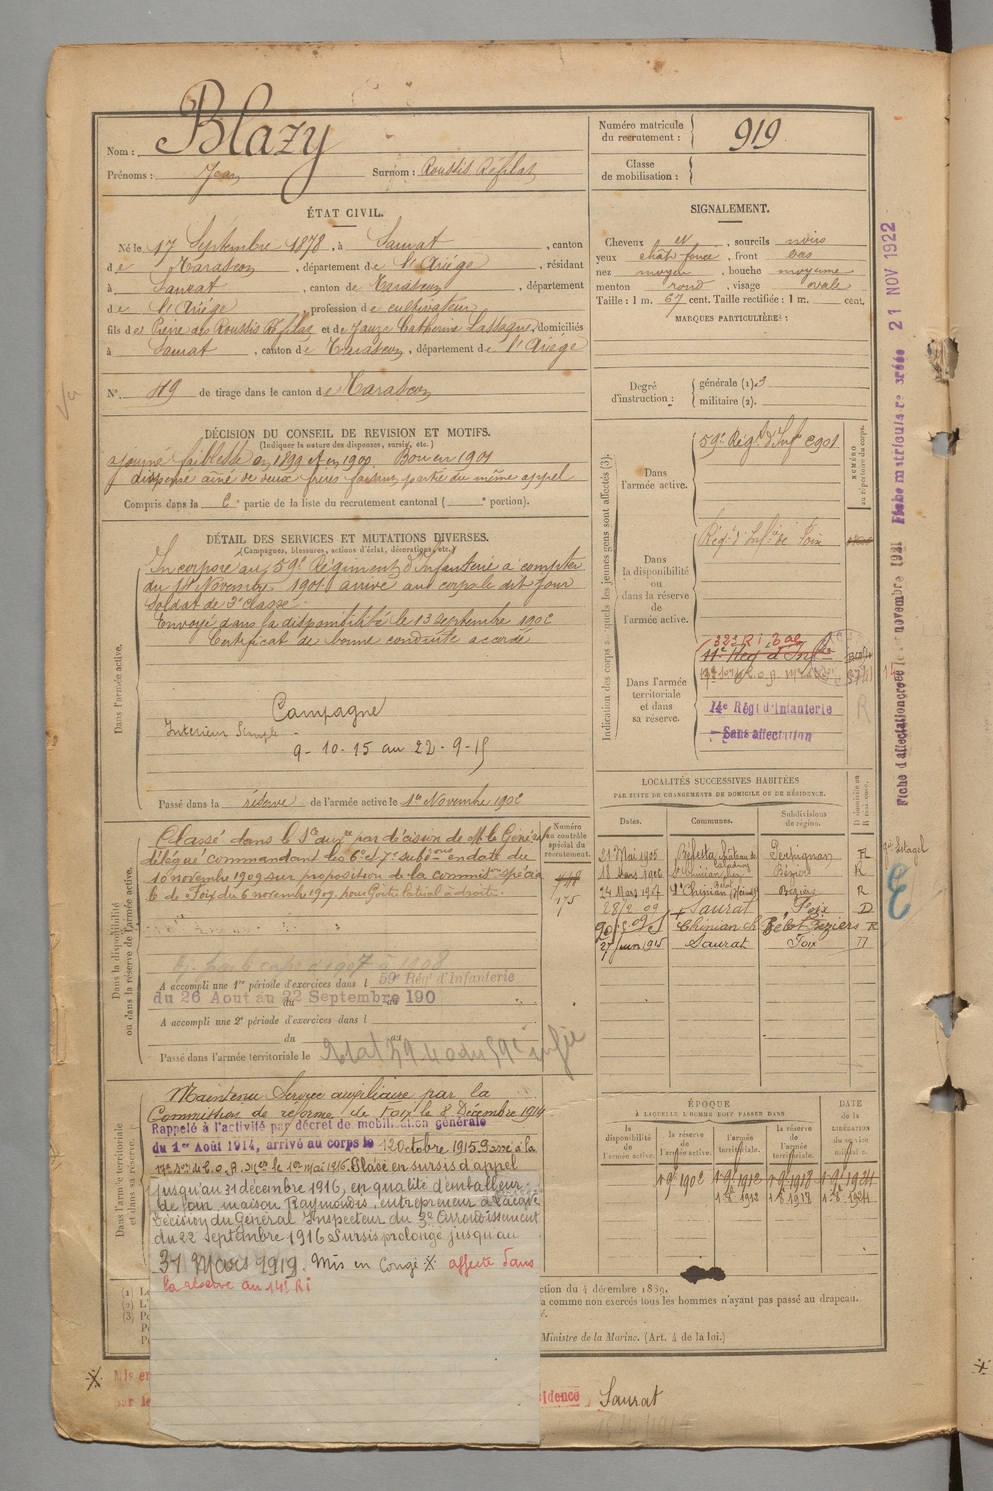 Nom : Blazy
Prénoms : Jean Surnom : Roussis Réfilat
Numéro matricule
du recrutement : 919
Classe
de mobilisation :
ÉTAT CIVIL.
Né le 17 Septembre 1878, à Saurat, canton
de Tarascon, département de l'Ariége, résidant
à Saurat, canton de Tarascon, département
de l'Ariége, profession de cultivateur
fils de Pierre dit Roussis Réfilat et de Jauze Catherine Lassagne, domiciliés
à Saurat, canton de Tarascon, département de l'Ariége
N° 49 de tirage dans le canton de Tarascon
SIGNALEMENT.
Cheveux et, sourcils noirs
yeux chât foncé, front bas
nez moyen, bouche moyenne
menton rond, visage ovale
Taille : 1 m. 67 cent. Taille rectifiée : 1 m. cent.
MARQUES PARTICULIÈRES :
Degré
d'instruction :
générale (1). 3
militaire (2).
DÉCISION DU CONSEIL DE REVISION ET MOTIFS.
(Indiquer la nature des dispenses, sursis, etc.)
ajourné faiblesse en 1899 et en 1900. Bon en 1901
dispensé aîné de deux frères faisant partie du même appel
Compris dans la 6e partie de la liste du recrutement cantonal ( e portion).
DÉTAIL DES SERVICES ET MUTATIONS DIVERSES.
(Campagnes, blessures, actions d'éclat, décorations, etc.)
Dans l'armée active.
Incorporé au 59e Régiment d'Infanterie à compter
du 14 Novembre 1901 arrivé au corps le dit jour
soldat de 2e classe.
Envoyé dans la disponibilité le 13 septembre 1902
Certificat de bonne conduite accordé
Campagne
Interieur Simple -
9 - 10 - 15 au 22 - 9 - 15
Passé dans la réserve de l'armée active le 1er Novembre 1902
Indication des corps auxquels les jeunes gens sont affectés (3).
NUMÉRO
au répertoire du corps.
Dans
l'armée active.
59e Régt d'Inf c 901
Dans
la disponibilité
ou
dans la réserve
de
l'armée active.
Régt d'Infie de Foix
Dans l'armée
territoriale
et dans
sa réserve.
32e R i
11e Reg d'Infie
14e Régt d'Infanterie
Sans affectation
Fiche d'affectation créée le novembre 1921 Fiche matriculaire créée 21 NOV 1922
LOCALITÉS SUCCESSIVES HABITÉES
PAR SUITE DE CHANGEMENTS DE DOMICILE OU DE RÉSIDENCE.
Dates. Communes. Subdivisions
de région.
21 Mai 1905 Bélesta Perpignan R
18 Mars 1906 St Chinian Béziers R
24 Mars 1907 St Chinian Béziers R
28/2 09 Saurat Foix D
St Chinian Béziers R
27 juin 1915 Saurat Foix D
Dans la disponibilité
ou dans la réserve de l'armée active.
Numéro
au contrôle
spécial du
recrutement.
175
Classé dans le Sce auxre par décision de Mr le Général
délégué commandant les 6e et 7e subdons en date du
10 novembre 1909 sur proposition de la commission spéciale
de Foix du 6 novembre 1909 pour Goitre latéral à droite.
A accompli une 1re période d'exercices dans l 59e Rég' d'Infanterie
du 26 Aout au 22 Septembre 190
A accompli une 2e période d'exercices dans l
du au
Passé dans l'armée territoriale le
Dans l'armée territoriale
et dans sa réserve.
Maintenu Service auxiliaire par la
Commission de réforme de Foix le 8 Décembre 1914
Rappelé à l'activité par décret de mobilisation générale
du 1er Août 1914, arrivé au corps le 12 octobre 1915. Passé à la
17e Son de C. O. A. le 1er mai 1916. Placé en sursis d'appel
jusqu'au 31 décembre 1916, en qualité d'emballeur
de foin, maison Raymondis, entrepreneur à
Décision du Général Inspecteur du 3e Arrondissement
du 22 septembre 1916 Sursis prolongé jusqu'au
31 Mars 1919. Mis en Congé X affecté dans
la réserve au 14e Ri
ÉPOQUE
À LAQUELLE L'HOMME DOIT PASSER DANS
la
disponibilité
de
l'armée active.
la réserve
de
l'armée active.
l'armée
territoriale.
la
réserve de
l'armée
territoriale.
DATE
de la
LIBÉRATION
du service
militaire.
1-9 1902 1-9-1912 1-9-1918 1-9-1924
1-8-1912 1-8-1918 1-8-1924
ction du 4 décembre 1889.
a comme non exercés tous les hommes n'ayant pas passé au drapeau.
Ministre de la Marine. (Art. 4 de la loi.)
Mis en
par le
sidence, Saurat